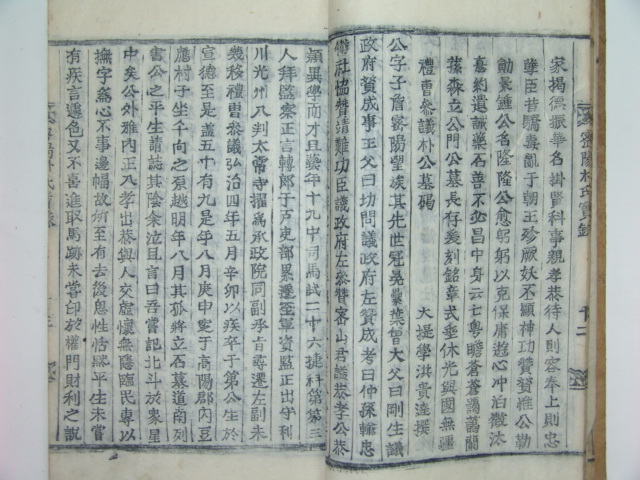 家揭德振華名掛賢科事親孝恭待人則容奉上則忠
孽臣昔驕毒亂于朝王殄厥妖不顯神功贊贊維公勒
勛東鍾公名隆隆公愈躬躬以克保庸遊心冲泊微汰
喜約遺誡藥石善不必昌中身云亡粤瞻蒼蒼蔼蔼
蓀森立公門公墓長存爰刻銘章式垂休光與國無疆
禮曹參議朴公墓碣
大提學洪貴達撰
公字子 密陽望族其先世冠 大父曰剛生議
政府贊成事王父曰切問議政府左贊成考曰仲孫輸忠
衛社協贊靖難功臣議政府左參贊密山君諡恭孝公恭
穎異學而才且藝年十九中司馬試二十六捷祥第第三
人拜監察正言轉郎子兵吏部累遷至軍資監正出守利
川光州入判太常寺擢爲承政院同副承旨尋遷左副未
幾移禮曹參議弘治四年五月辛卯以疾卒于第公生於
宣德至是盖五十有九是年八月庚申窆于高陽郡內豆
應村子坐午向之原越明年八月其孤將立石墓道南列
書公之平生請誌其陰余泣且言曰吾嘗記北斗於衆星
中矣公外雅內正入孝出恭與人交虛懷無隱臨民專以
撫字爲心不事邊幅故所至有去後思性恬然平生未嘗
有疾言遽色又不喜進取馬跡未嘗印於權門財利之說
密陽朴氏實錄
十二